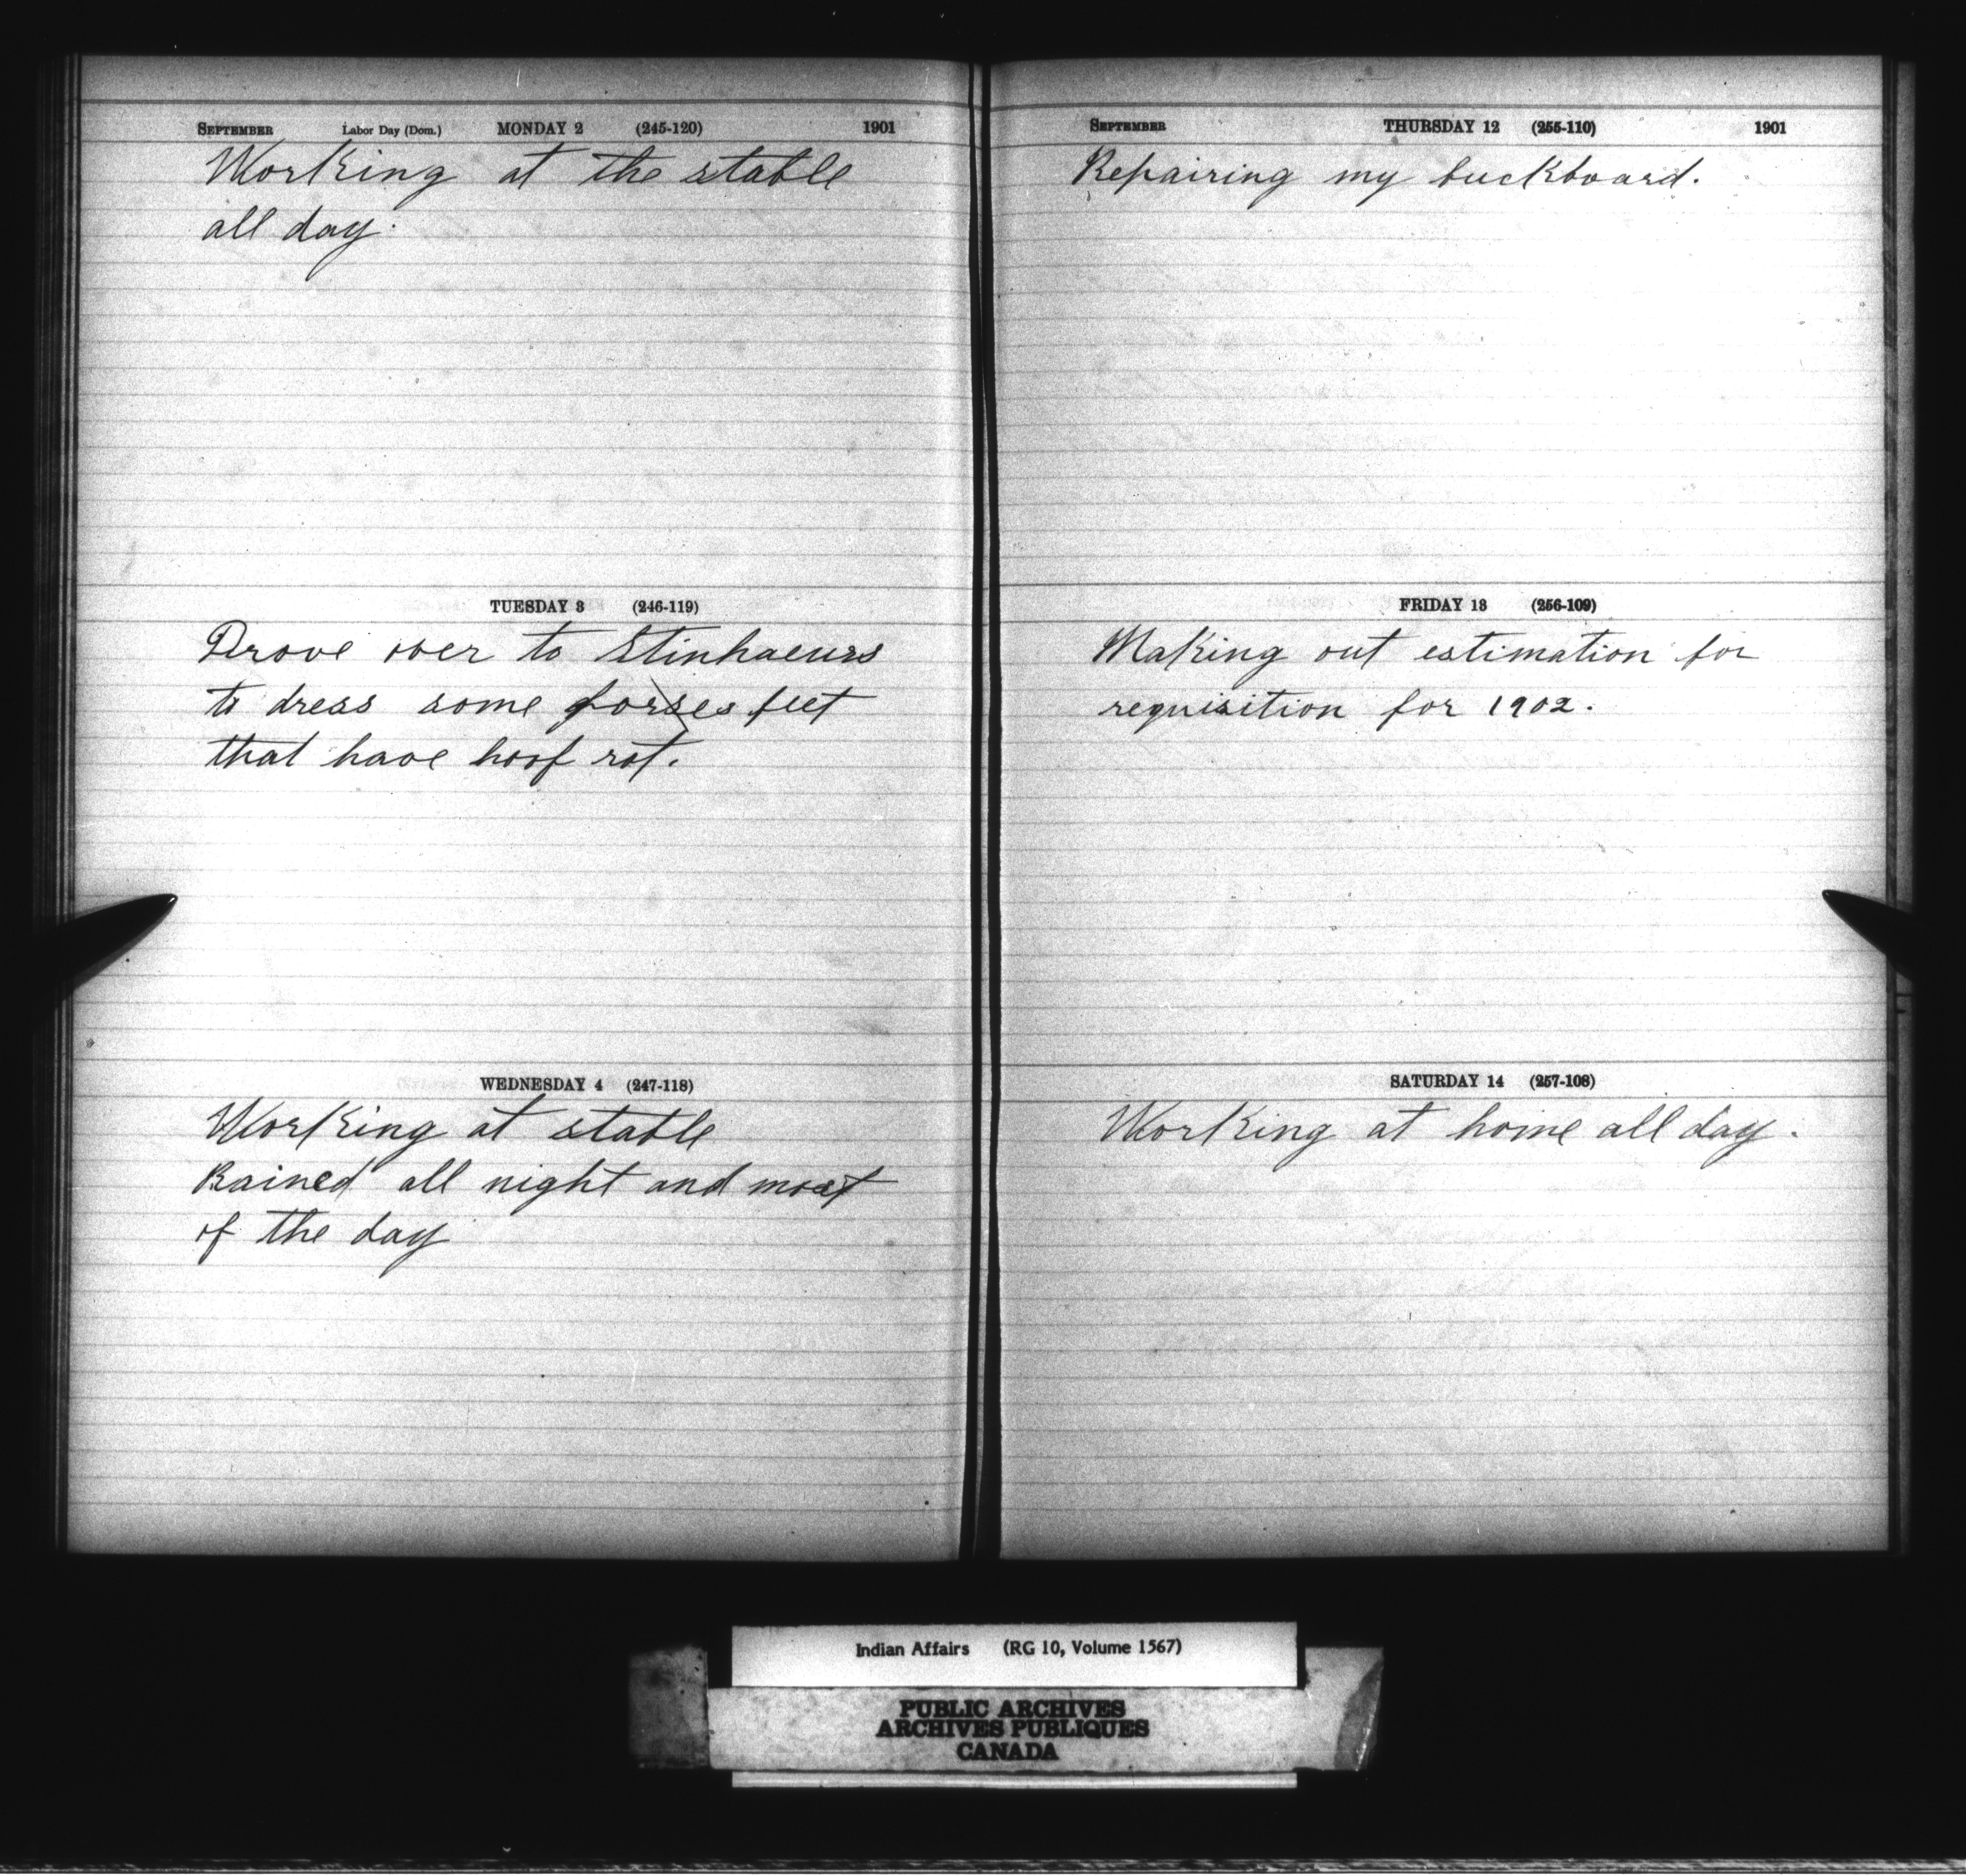 SEPTEMBER Labor Day (Dom.) MONDAY 2 (245-120) 1901
Working at the stable
all day.
TUESDAY 3 (246-119)
Drove over to Stinhaeurs
to dress some forses feet
that have hoof rot.
WEDNESDAY 4 (247-118)
Working at stable
Rained all night and most
of the day
SEPTEMBER THURSDAY 12 (255-110) 1901
Repairing my buckboard.
FRIDAY 13 (256-109)
Making out estimation for
requisition for 1902.
SATURDAY 14 (257-108)
Working at home all day.
Indian Affairs (RG 10, Volume 1567)
PUBLIC ARCHIVES
ARCHIVES PUBLIQUES
CANADA